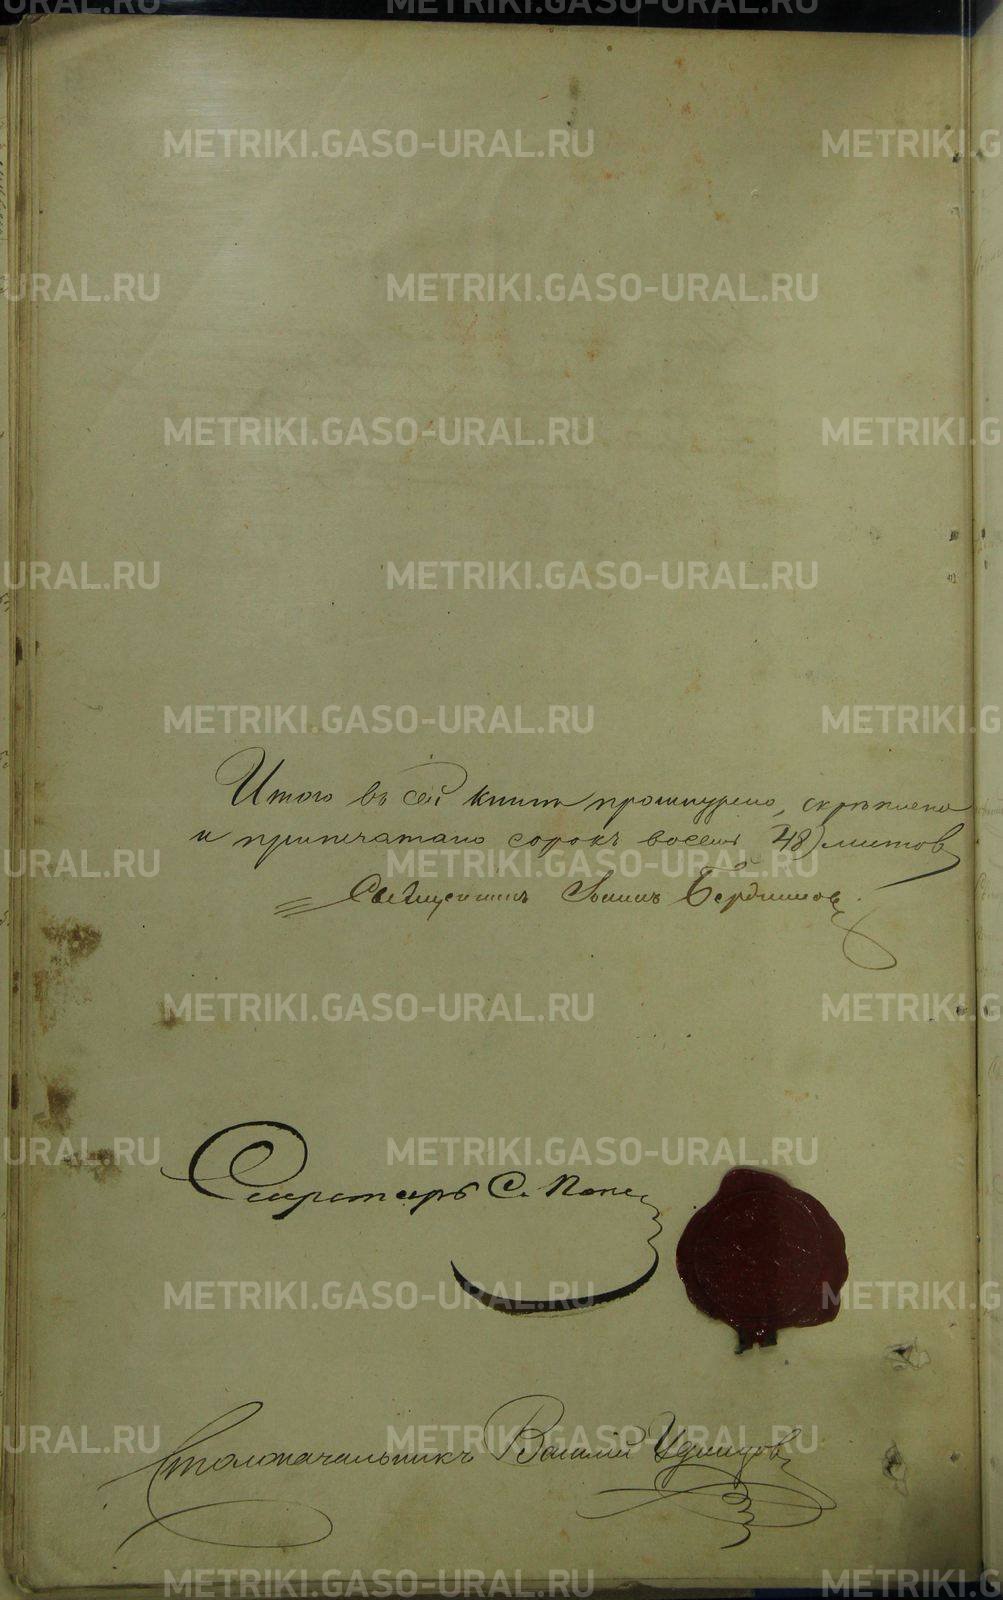 Итого въ сей книгѣ прошнурено, скрѣплено
и припечатано сорокъ восемь 48) листов
Священникъ Іоаннъ Бердниковъ
Секретарь С. Попо
Столоначальникъ Василій Удинцовъ
METRIKI.GASO-URAL.RU